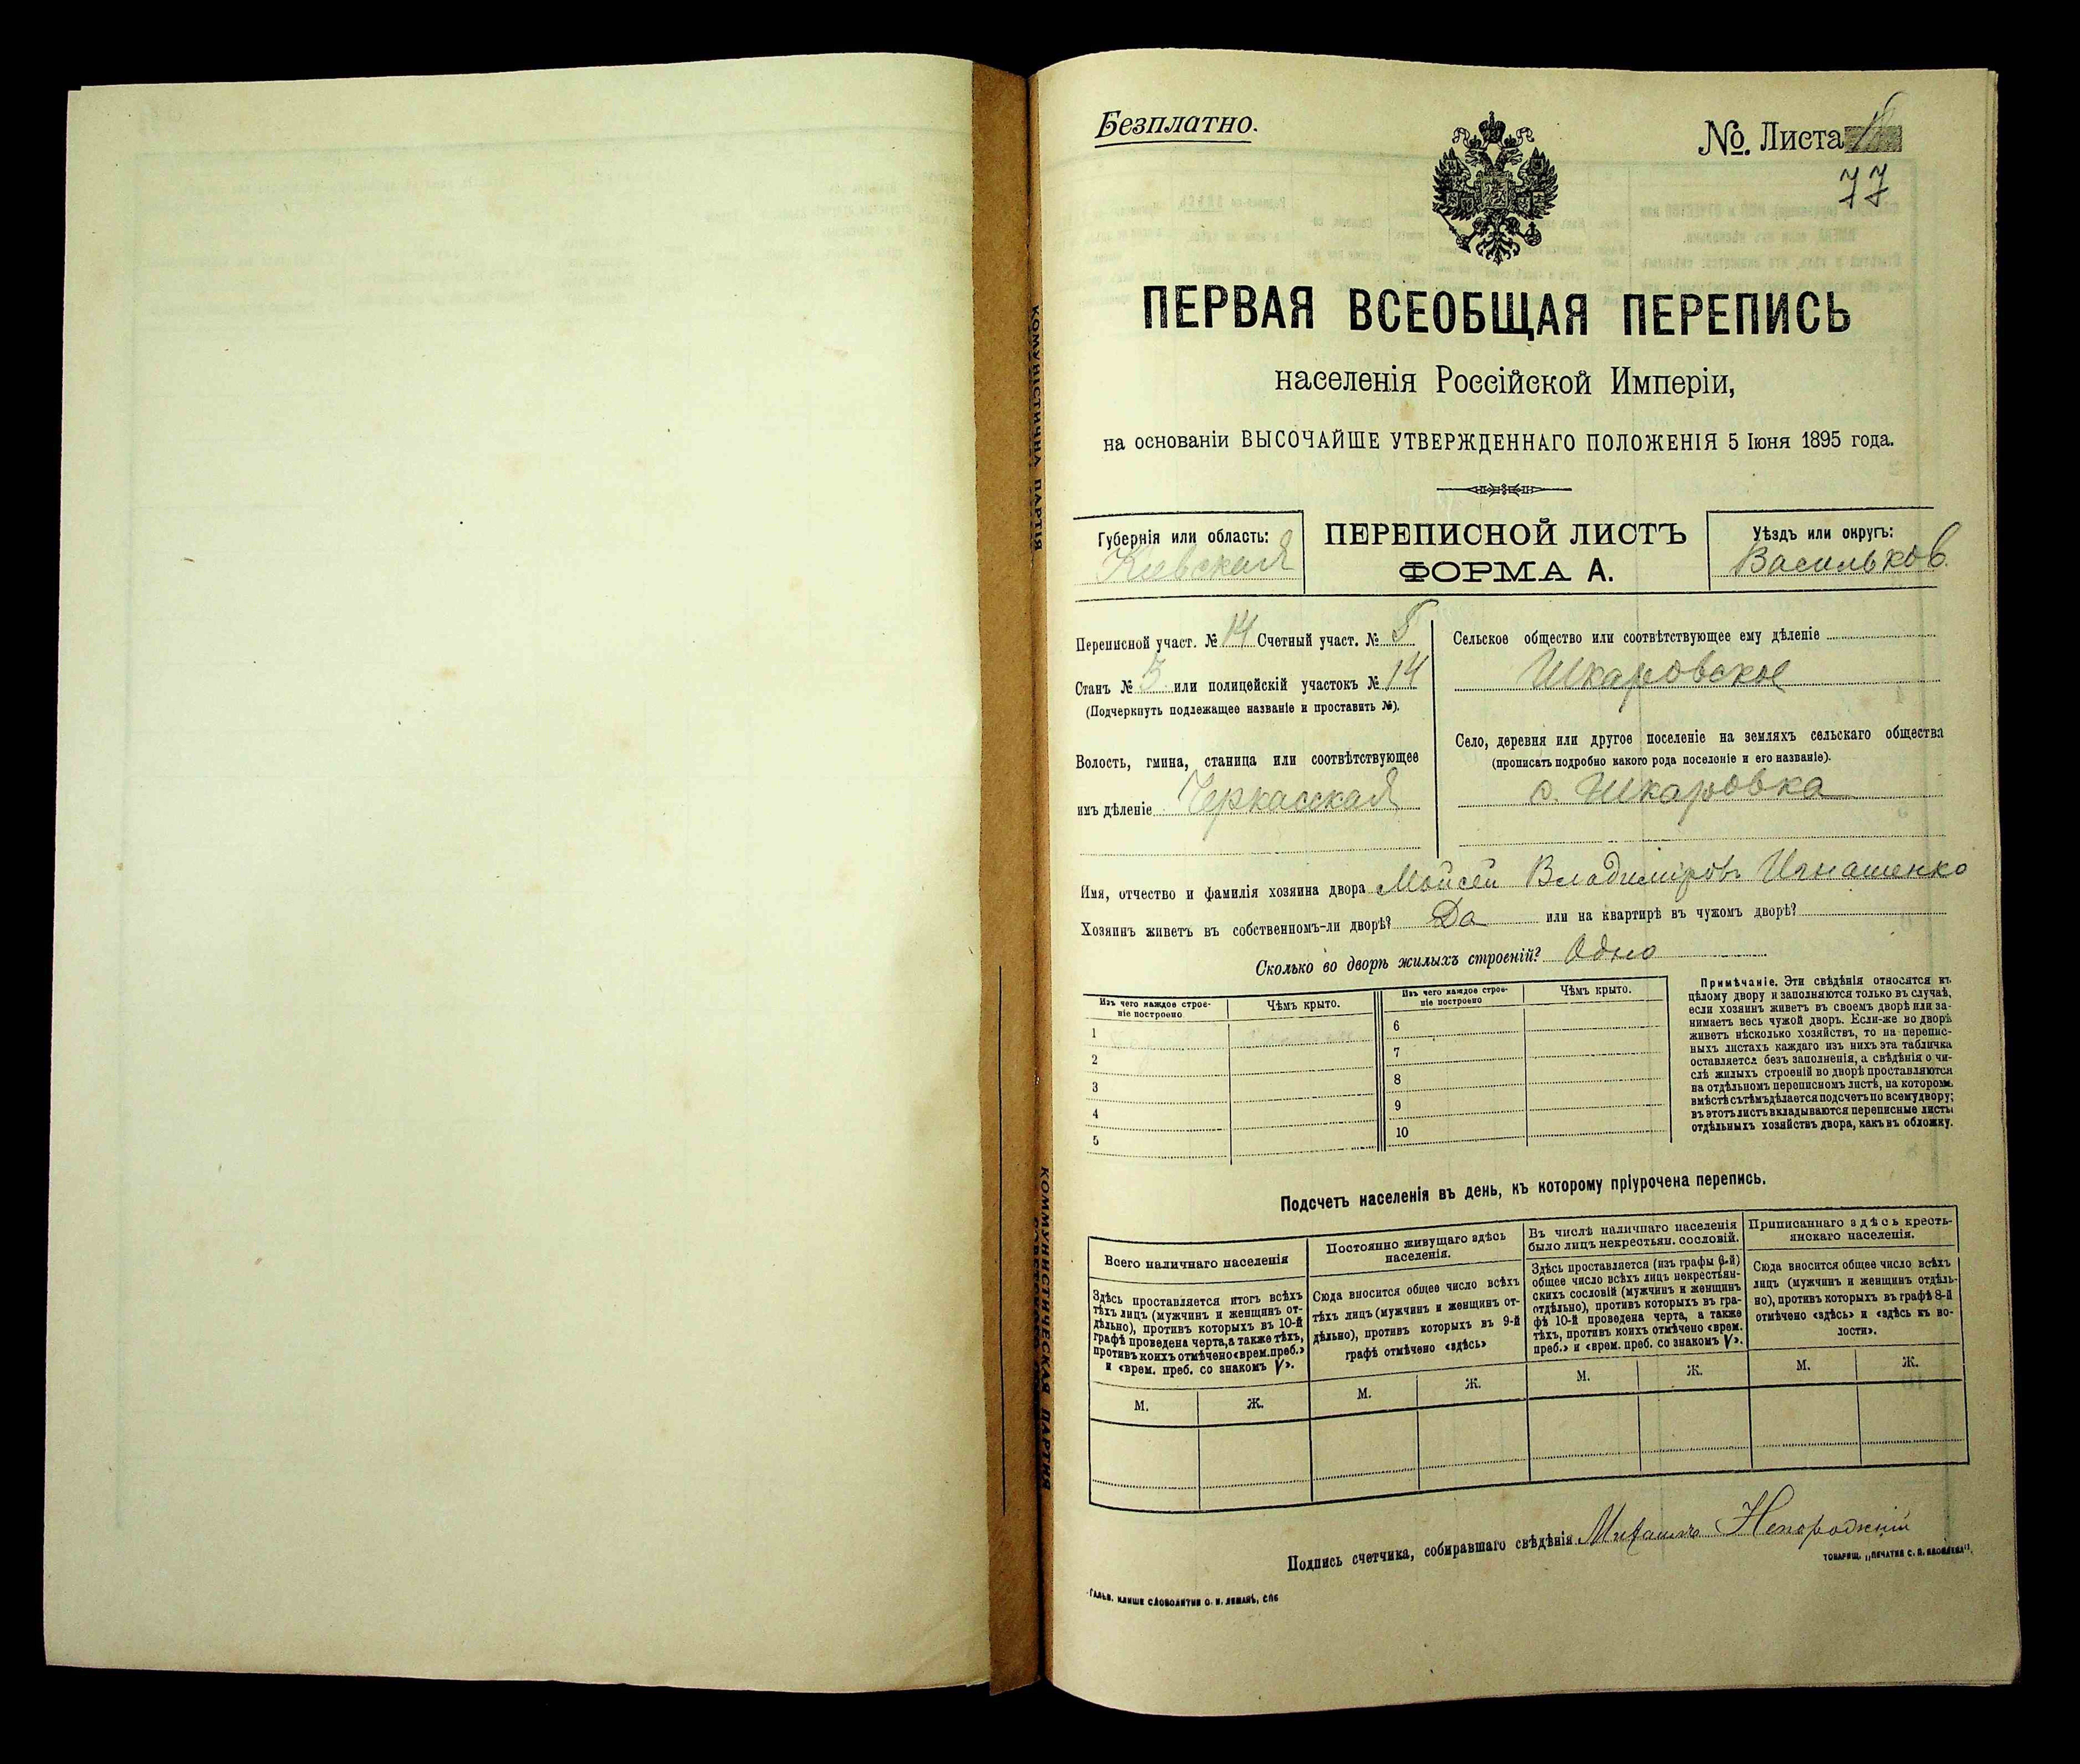 Безплатно.
№. Листа
77
ПЕРВАЯ ВСЕОБЩАЯ ПЕРЕПИСЬ
населенія Россійской Имперіи,
на основаніи ВЫСОЧАЙШЕ УТВЕРЖДЕННАГО ПОЛОЖЕНІЯ 5 Іюня 1895 года.
Губернія или область:
Киевская
ПЕРЕПИСНОЙ ЛИСТЪ
ФОРМА А.
Уѣздъ или округъ:
Васильков.
Переписной участ. № 14 Счетный участ. № 8
Станъ № 5 или полицейскій участокъ № 14
(Подчеркнуть подлежащее названіе и проставить №).
Волость, гмина, станица или соотвѣтствующее
имъ дѣленіе Черкасская
Сельское общество или соотвѣтствующее ему дѣленіе
Шкаровское
Село, деревня или другое поселеніе на земляхъ сельскаго общества
(прописать подробно какого рода поселеніе и его названіе).
с. Шкаровка
Имя, отчество и фамилія хозяина двора Мойсей Владиміровъ Игнашенко
Хозяинъ живетъ въ собственномъ-ли дворѣ? Да или на квартирѣ въ чужомъ дворѣ?
Сколько во дворѣ жилыхъ строеній? Одно
Изъ чего каждое строе-
ніе построено
Чѣмъ крыто.
Изъ чего каждое строе-
ніе построено
Чѣмъ крыто.
1
2
3
4
5
6
7
8
9
10
Примѣчаніе. Эти свѣдѣнія относятся къ
цѣлому двору и заполняются только въ случаѣ,
если хозяинъ живетъ въ своемъ дворѣ или за-
нимаетъ весь чужой дворъ. Если-же во дворѣ
живетъ нѣсколько хозяйствъ, то на перепис-
ныхъ листахъ каждаго изъ нихъ эта табличка
оставляется безъ заполненія, а свѣдѣнія о чи-
слѣ жилыхъ строеній во дворѣ проставляются
на отдѣльномъ переписномъ листѣ, на которомъ
вмѣстѣ съ тѣмъ дѣлается подсчетъ по всему двору;
въ этотъ листъ вкладываются переписные листы
отдѣльныхъ хозяйствъ двора, какъ въ обложку.
Подсчетъ населенія въ день, къ которому пріурочена перепись.
Всего наличнаго населенія
Здѣсь проставляется итогъ всѣхъ
тѣхъ лицъ (мужчинъ и женщинъ от-
дѣльно), противъ которыхъ въ 10-й
графѣ проведена черта, а также тѣхъ,
противъ коихъ отмѣчено «врем. преб.»
и «врем. преб. со знакомъ V».
М.
Ж.
Постоянно живущаго здѣсь
населенія.
Сюда вносится общее число всѣхъ
тѣхъ лицъ (мужчинъ и женщинъ от-
дѣльно), противъ которыхъ въ 9-й
графѣ отмѣчено «здѣсь»
М.
Ж.
Въ числѣ наличнаго населенія
было лицъ некрестьян. сословій.
Здѣсь проставляется (изъ графы 6-й)
общее число всѣхъ лицъ некрестьян-
скихъ сословій (мужчинъ и женщинъ
отдѣльно), противъ которыхъ въ гра-
фѣ 10-й проведена черта, а также
тѣхъ, противъ коихъ отмѣчено «врем.
преб.» и «врем. преб. со знакомъ V».
М.
Ж.
Приписаннаго здѣсь кресть-
янскаго населенія.
Сюда вносится общее число всѣхъ
лицъ (мужчинъ и женщинъ отдѣль-
но), противъ которыхъ въ графѣ 8-й
отмѣчено «здѣсь» и «здѣсь къ во-
лости».
М.
Ж.
Подпись счетчика, собиравшаго свѣдѣнія Михаилъ
ТОВАРИЩ. „ПЕЧАТНЯ С. П. ЯКОВЛЕВА".
ГАЛЬВ. КЛИШЕ СЛОВОЛИТНИ О. И. ЛЕМАНЪ, СПБ
КОМУНІСТИЧНА ПАРТІЯ
КОММУНИСТИЧЕСКАЯ ПАРТИЯ